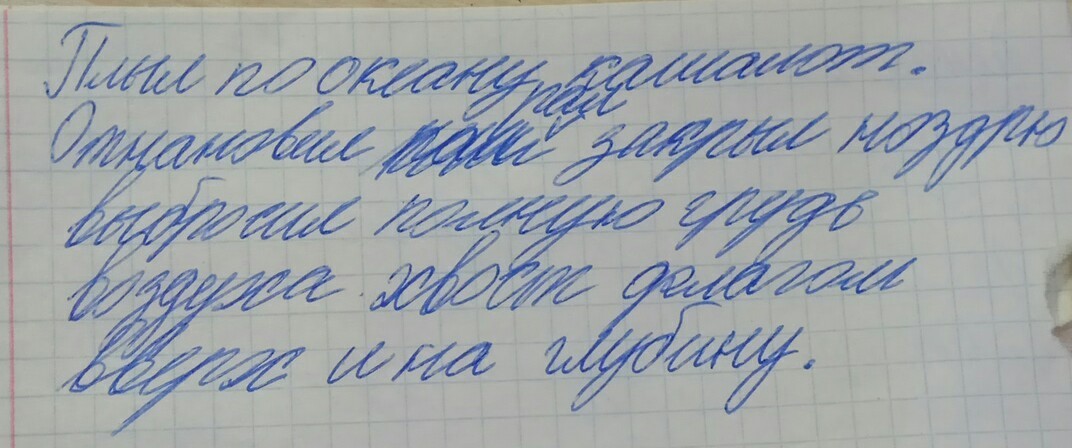 Плыл по океану кашалот.
Отнановил пал закрыл ноздрю
выбросил полную грудь
воздуха хвост флагом
вверх и на глубину.